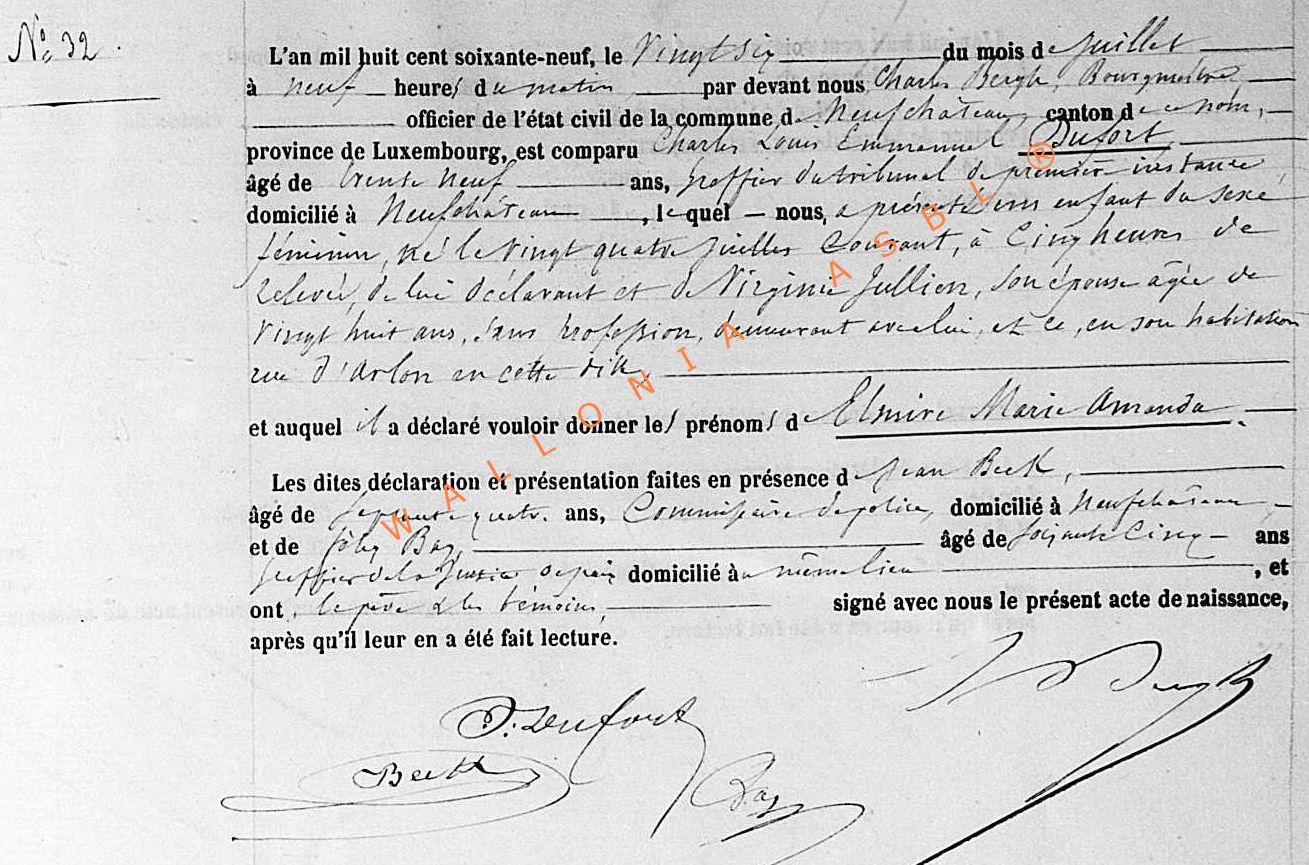 N° 32.
L'an mil huit cent soixante-neuf, le Vingt six du mois de Juillet
à neuf heures du matin par devant nous Charles Bergh, Bourgmestre
officier de l'état civil de la commune de Neufchâteau, canton de ce nom,
province de Luxembourg, est comparu Charles Louis Emmanuel Dufort
âgé de trente neuf ans, greffier du tribunal de première instance,
domicilié à Neufchâteau, lequel nous, a présenté un enfant du sexe
féminin, né le vingt quatre juillet courant, à cinq heures de
relevée, de lui déclarant et de Virginie Jullion, son épouse agée de
vingt huit ans, sans profession, demeurant avec lui, et ce, en son habitation
rue d'Arlon en cette ville,
et auquel il a déclaré vouloir donner les prénoms d Elmire Marie Amanda.
Les dites déclaration et présentation faites en présence de Jean Beck,
âgé de septante quatre ans, Commissaire de police, domicilié à Neufchâteau,
et de Bay, âgé de soixante cinq ans
greffier de la Justice de paix domicilié au même lieu, et
ont, le père & les témoins, signé avec nous le présent acte de naissance,
après qu'il leur en a été fait lecture.
Bergh
Dufort
Beck
Bay
WALLONIA ASBL ®